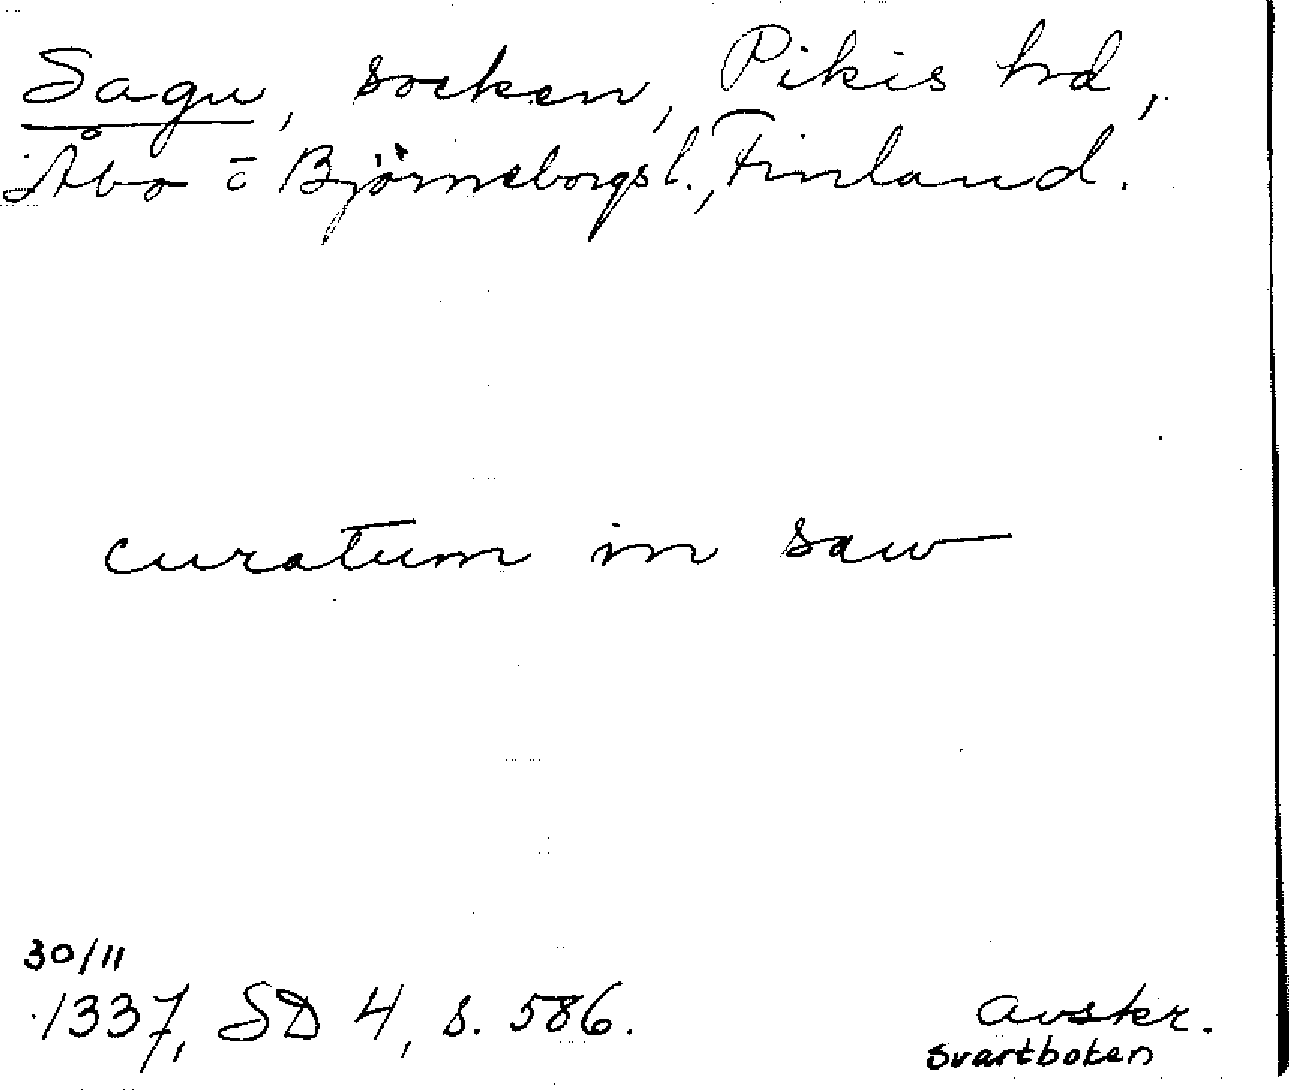 Sagu, socken, Pikis hrd,
Åbo o Björneborgs l., Finland.
curatum in saw
30/11
1337, SD 4, s. 586.
avskr.
svartboken